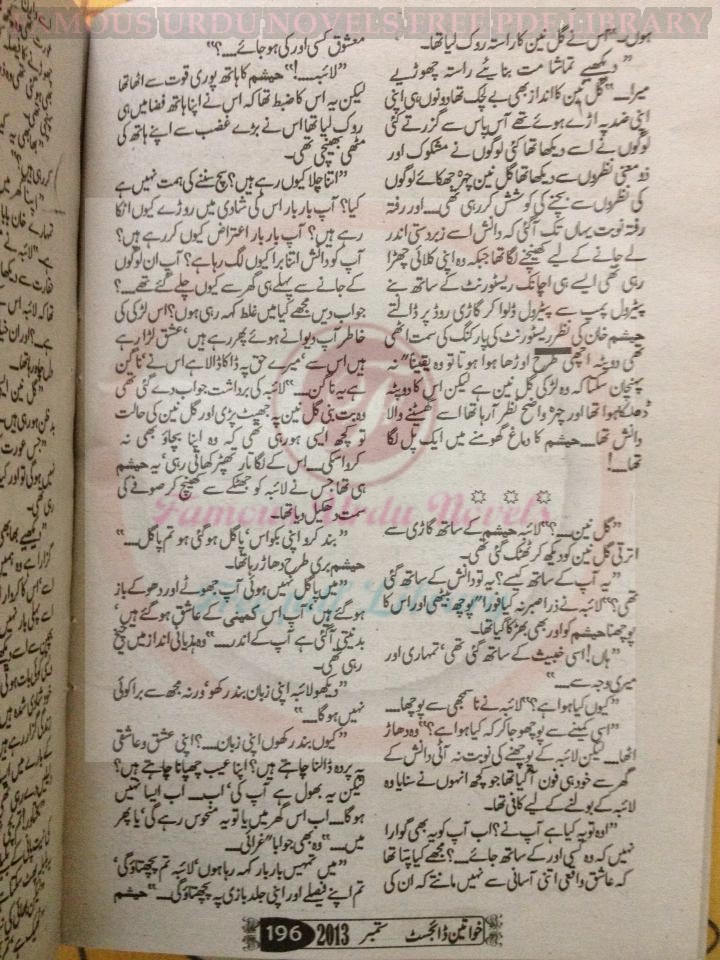 FAMOUS URDU NOVELS FREE PDF LIBRARY
ہوں۔" اس نے گل نین کا راستہ روک لیا تھا۔
"دیکھیے تماشا مت بنائیے راستہ چھوڑیے
میرا۔۔۔" گل نین کا انداز بھی بے لچک تھا دونوں ہی اپنی
اپنی ضد پہ اڑے ہوئے تھے آس پاس سے گزرتے کئی
لوگوں نے اسے دیکھا تھا کئی لوگوں نے مشکوک اور
ذو معنی نظروں سے دیکھا تھا گل نین چہرہ جھکائے لوگوں
کی نظروں سے بچنے کی کوشش کر رہی تھی۔۔۔ اور رفتہ
رفتہ نوبت یہاں تک آگئی کہ دانش اسے زبردستی اندر
لے جانے کے لیے کھینچنے لگا تھا جبکہ وہ اپنی کلائی چھڑا
رہی تھی ایسے ہی اچانک ریسٹورنٹ کے ساتھ بنے
پیٹرول پمپ سے پیٹرول ڈلوا کر گاڑی روڈ پر ڈالتے
حیثم خان کی نظر ریسٹورنٹ کی پارکنگ کی سمت اٹھی
تھی دوپٹہ اچھی طرح اوڑھا ہوا ہوتا تو وہ یقیناً" نہ
پہچان سکتا کہ وہ لڑکی گل نین ہے لیکن اس کا دوپٹہ
ڈھلکا ہوا تھا اور چہرہ واضح نظر آرہا تھا اسے گھسیٹنے والا
دانش تھا۔۔۔ حیثم کا دماغ گھومنے میں ایک پل لگا
تھا۔۔۔!
"گل نین۔۔۔؟" لائبہ حیثم کے ساتھ گاڑی سے
اترتی گل نین کو دیکھ کر ٹھٹک گئی تھی۔
"یہ آپ کے ساتھ کیسے؟ یہ تو دانش کے ساتھ گئی
تھی؟" لائبہ نے ذرا صبر نہ کیا فوراً" پوچھ بیٹھی اور اس کا
پوچھنا حیثم کو اور بھی بھڑکا گیا تھا۔
"ہاں! اسی خبیث کے ساتھ گئی تھی، تمہاری اور
میری وجہ سے۔۔۔"
"کیوں کیا ہوا ہے؟" لائبہ نے ناسمجھی سے پوچھا۔۔۔
"اسی کمینے سے پوچھو جا کر کہ کیا ہوا ہے؟" وہ دھاڑ
اٹھا۔۔۔ لیکن لائبہ کے پوچھنے کی نوبت نہ آئی دانش کے
گھر سے خود ہی فون آگیا تھا جو کچھ انہوں نے سنایا وہ
لائبہ کے بولنے کے لیے کافی تھا۔
"اوہ تو یہ کیا ہے آپ نے؟ اب آپ کو یہ بھی گوارا
نہیں کہ وہ کسی اور کے ساتھ جائے۔۔۔؟ مجھے کیا پتا تھا
کہ عاشق واقعی اتنی آسانی سے نہیں مانتے کہ ان کی
معشوق کسی اور کی ہو جائے۔۔۔؟"
"لائبہ۔۔۔!" حیثم کا ہاتھ پوری قوت سے اٹھا تھا
لیکن یہ اس کا ضبط تھا کہ اس نے اپنا ہاتھ فضا میں ہی
روک لیا تھا اس نے بڑے غضب سے اپنے ہاتھ کی
مٹھی بھینچی تھی۔
"اتنا چلا کیوں رہے ہیں؟ سچ سننے کی ہمت نہیں ہے
کیا؟ آپ بار بار اس کی شادی میں روڑے کیوں اٹکا
رہے ہیں؟ آپ بار بار اعتراض کیوں کر رہے ہیں؟
آپ کو دانش اتنا برا کیوں لگ رہا ہے؟ آپ ان لوگوں
کے جانے سے پہلے ہی گھر سے کیوں چلے گئے تھے۔۔۔؟
جواب دیں مجھے کیا میں غلط کہہ رہی ہوں؟ اس لڑکی کی
خاطر آپ دیوانے ہوئے پھر رہے ہیں، عشق لڑا رہے
ہیں اس سے، میرے حق پہ ڈاکا ڈالا ہے اس نے، ناگن
ہے یہ ناگن۔۔۔" لائبہ کی برداشت جواب دے گئی تھی
وہ بت بنی گل نین پہ جھپٹ پڑی اور گل نین کی حالت
تو کچھ ایسی ہو رہی تھی کہ وہ اپنا بچاؤ بھی نہ
کروا سکی۔۔۔ اس کے لگاتار تھپڑ کھاتی رہی، یہ حیثم
ہی تھا جس نے لائبہ کو جھٹکے سے کھینچ کر صوفے کی
سمت دھکیل دیا تھا۔
"بند کرو اپنی بکواس، پاگل ہو گئی ہو تم پاگل۔۔۔"
حیثم بری طرح دھاڑ رہا تھا۔
"میں پاگل نہیں ہوئی آپ جھوٹے اور دھوکے باز
ہو گئے ہیں، آپ اس کمینی کے عاشق ہو گئے ہیں،
بدنیتی آگئی ہے آپ کے اندر۔۔۔" وہ ہذیانی انداز میں چیخ
رہی تھی۔
"دیکھو لائبہ اپنی زبان بند رکھو، ورنہ مجھ سے برا کوئی
نہیں ہوگا۔۔۔"
"کیوں بند رکھوں اپنی زبان۔۔۔؟ اپنی عشق و عاشقی
پہ پردہ ڈالنا چاہتے ہیں؟ اپنا عیب چھپانا چاہتے ہیں؟
لیکن یہ بھول ہے آپ کی، اب۔۔۔ اب ایسا نہیں
ہوگا۔۔۔ اب اس گھر میں یا تو یہ منحوس رہے گی، یا پھر
میں۔۔۔" وہ بھی جواباً" غرائی۔۔۔
"میں تمہیں بار بار کہہ رہا ہوں، لائبہ تم پچھتاؤ گی،
تم اپنے فیصلے اور اپنی جلد بازی پہ پچھتاؤ گی۔۔۔" حیثم
Famous Urdu Novels
خواتین ڈائجسٹ ستمبر 2013 196